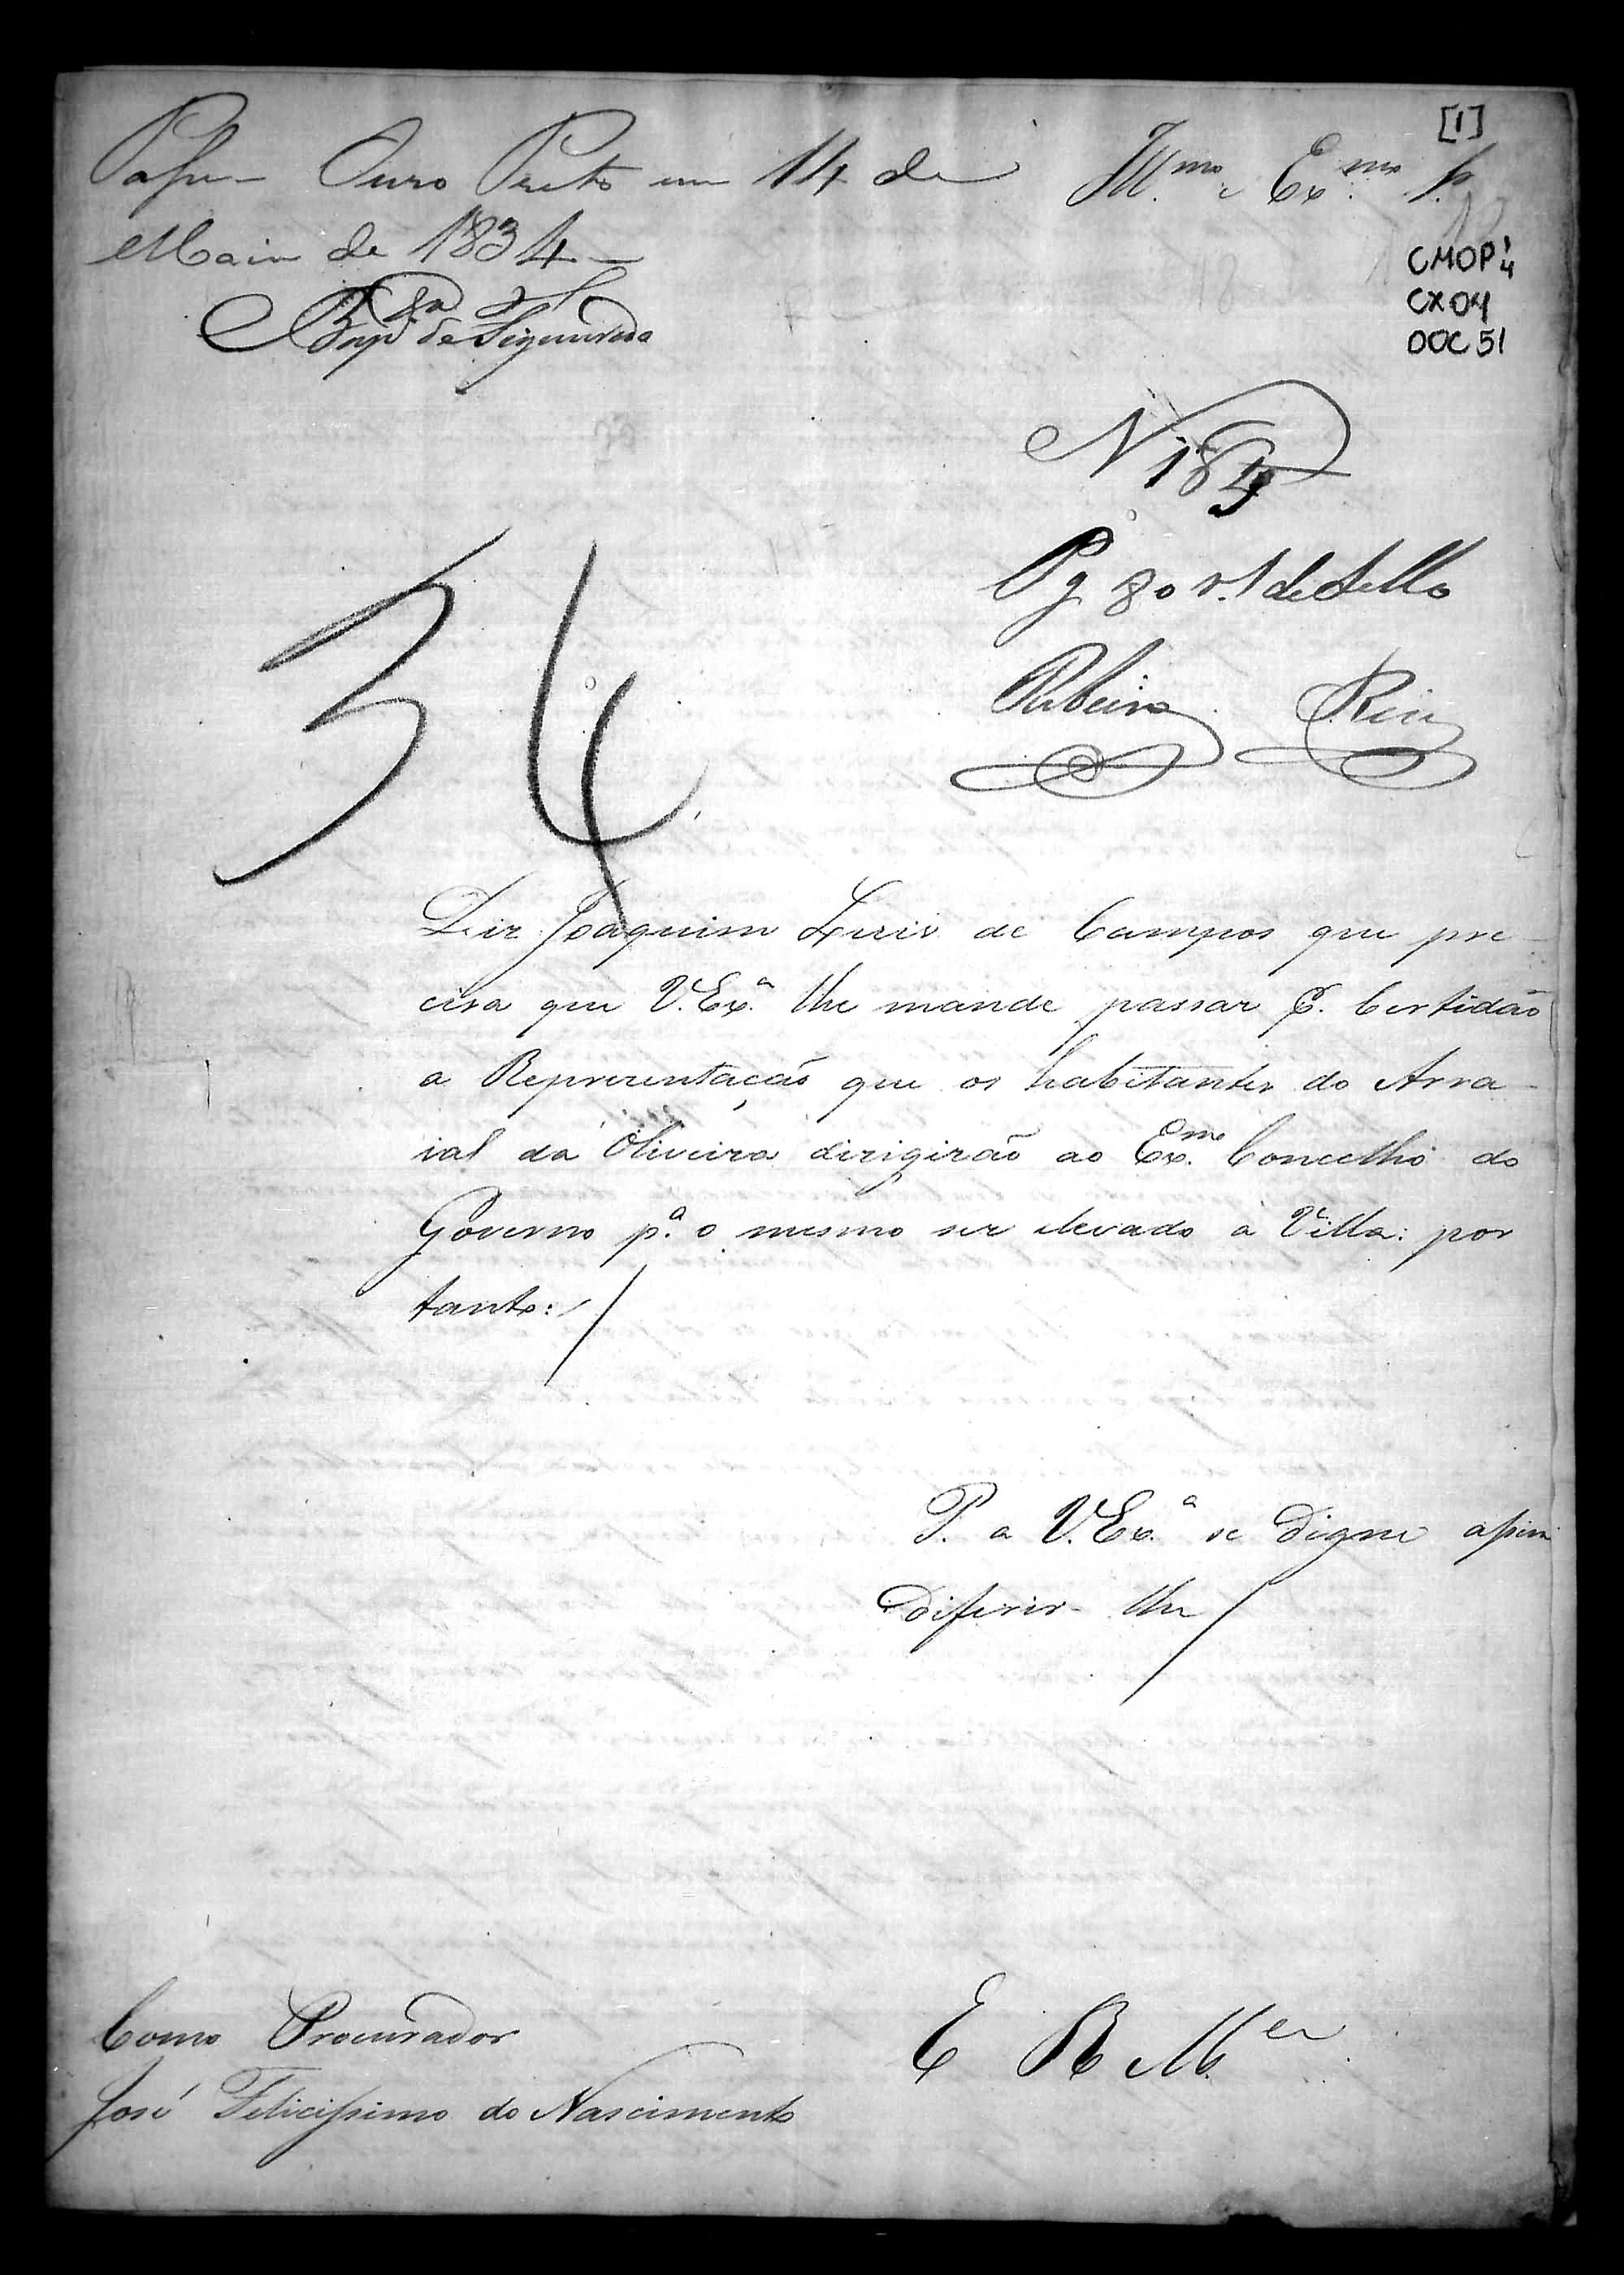 [1]
Passe – Ouro Preto em 14 de
Maio de 1834 –
Bap.ta de Figueiredo
Ill.mo e Ex.mo Sr.
CMOP 1/4
CX 04
DOC 51
N 184
Pg 80 r.s de Sello
Ribeiro Reis
34
Diz Joaquim Luis de Campos que pre-
cisa que V. Ex.a lhe mande passar P. Certidão
a Reprezentação que os habitantes do Arra-
ial da Oliveira dirigirão ao Ex.mo Concelho do
Governo p.a o mesmo ser elevado à Villa: por
tanto: /
P. a V. Ex.a se Digne assim
Diferir-lhe /
E R M.ce
Como Procurador
José Felicissimo do Nascimento